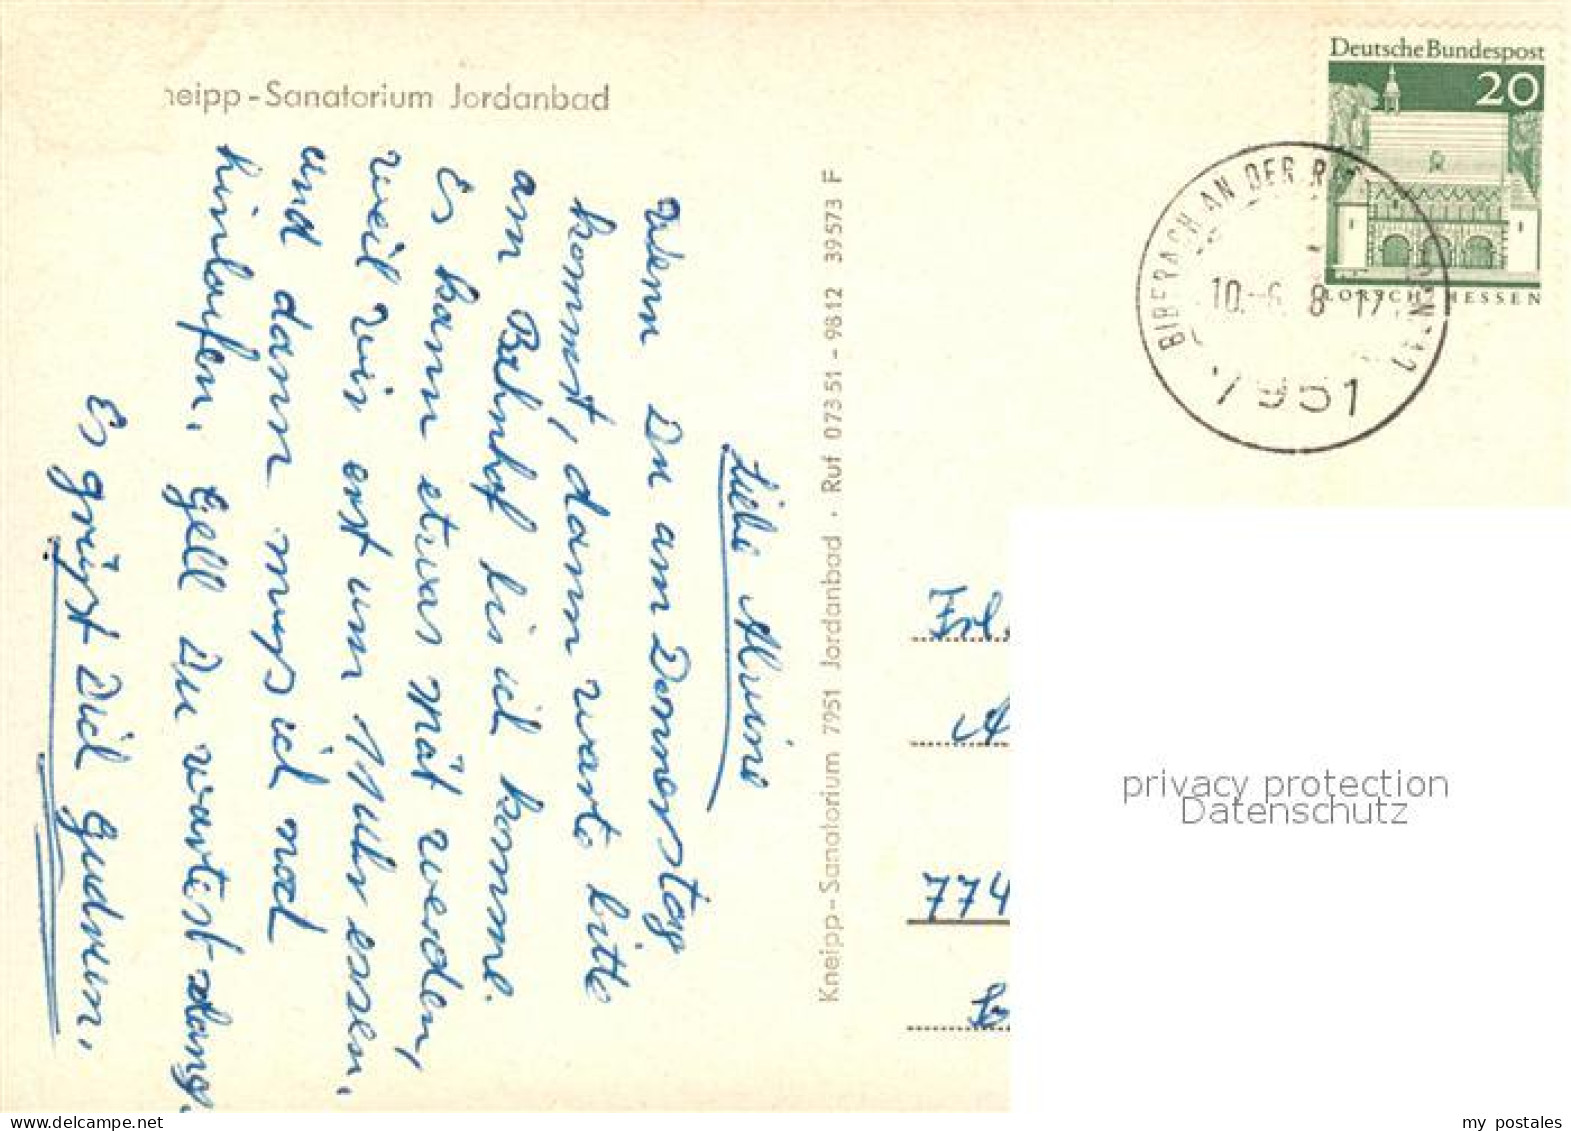 neipp - Sanatorium Jordanbad
Liebe Muini
Wenn Du am Donnerstag
kommst, dann warte bitte
am Bahnhof bis ich komme.
Es kann etwas spät werden,
weil wir erst um 11 Uhr essen,
und dann muss ich noch
hinlaufen. Gell Du wartest solang.
Es grüßt Dich Gudrun.
Kneipp - Sanatorium 7951 Jordanbad · Ruf 07351 - 9812 39573 F
Deutsche Bundespost
20
LORSCH HESSEN
BIBERACH AN DER
10.-6. 8-17
7951
Frl.
774
privacy protection
Datenschutz
www.delcampe.net
my_postales